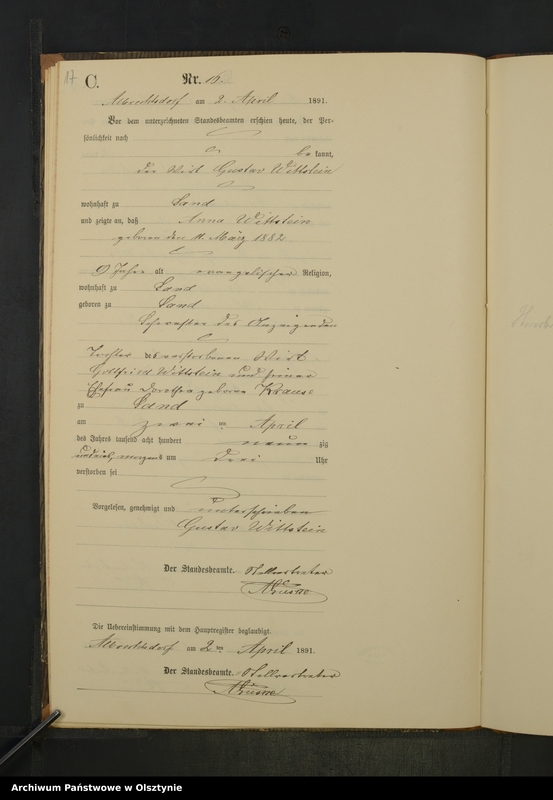 17
C.
Nr. 15.
Albrechtsdorf am 2. April 1891.
Vor dem unterzeichneten Standesbeamten erschien heute, der Per-
sönlichkeit nach
be kannt,
der Wirt Gustav Wittstein
wohnhaft zu Sand
und zeigte an, daß Anna Wittstein
geboren den 11. März 1882
9 Jahre alt evangelischer Religion,
wohnhaft zu Sand
geboren zu Sand
Schwester des Anzeigenden
Tochter des verstorbenen Wirt
Gottfried Wittstein und seiner
Ehefrau Dorothea geborne Krause
zu Sand
am zwei ten April
des Jahres tausend acht hundert neun zig
und eins, morgens um drei Uhr
verstorben sei
Vorgelesen, genehmigt und unterschrieben
Gustav Wittstein
Der Standesbeamte. Stellvertreter
Die Uebereinstimmung mit dem Hauptregister beglaubigt.
Albrechtsdorf am 2ten April 1891.
Der Standesbeamte. Stellvertreter
Archiwum Państwowe w Olsztynie